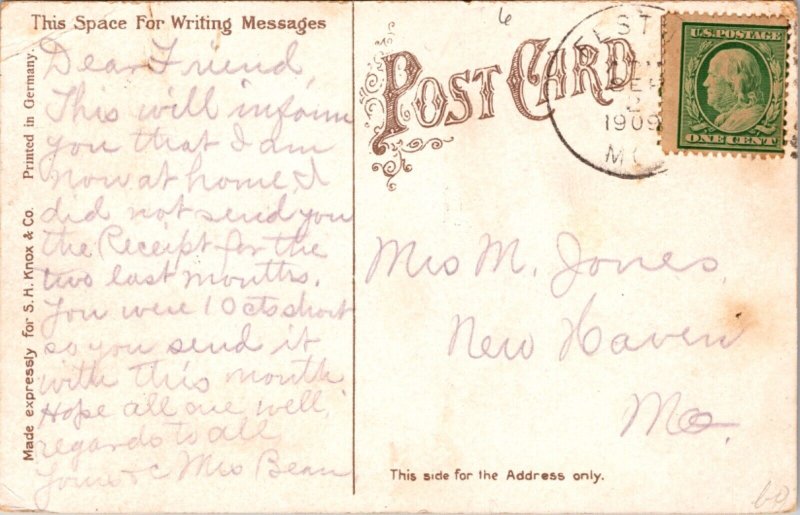 This Space For Writing Messages
Dear Friend,
This will inform
you that I am
now at home. I
did not send you
the Receipt for the
two last months.
You were 10 cts short
so you send it
with this month
Hope all are well,
regards to all
Yours &c Mrs Bean
Printed in Germany.
Made expressly for S. H. Knox & Co.
6
POST CARD
2
1909
MO
U.S. POSTAGE
ONE CENT
Mrs M. Jones,
New Haven
Mo.
This side for the Address only.
60